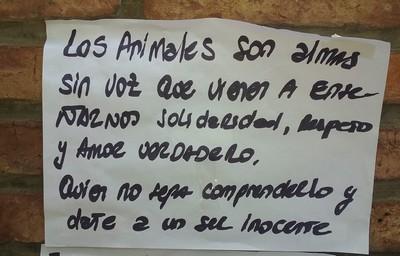 Los Animales son almas
sin voz que vienen A ense-
ñARNOS solidaridad, respeto
y Amor verdadero.
Quien no sepa comprenderlo y
dañe a un ser inocente